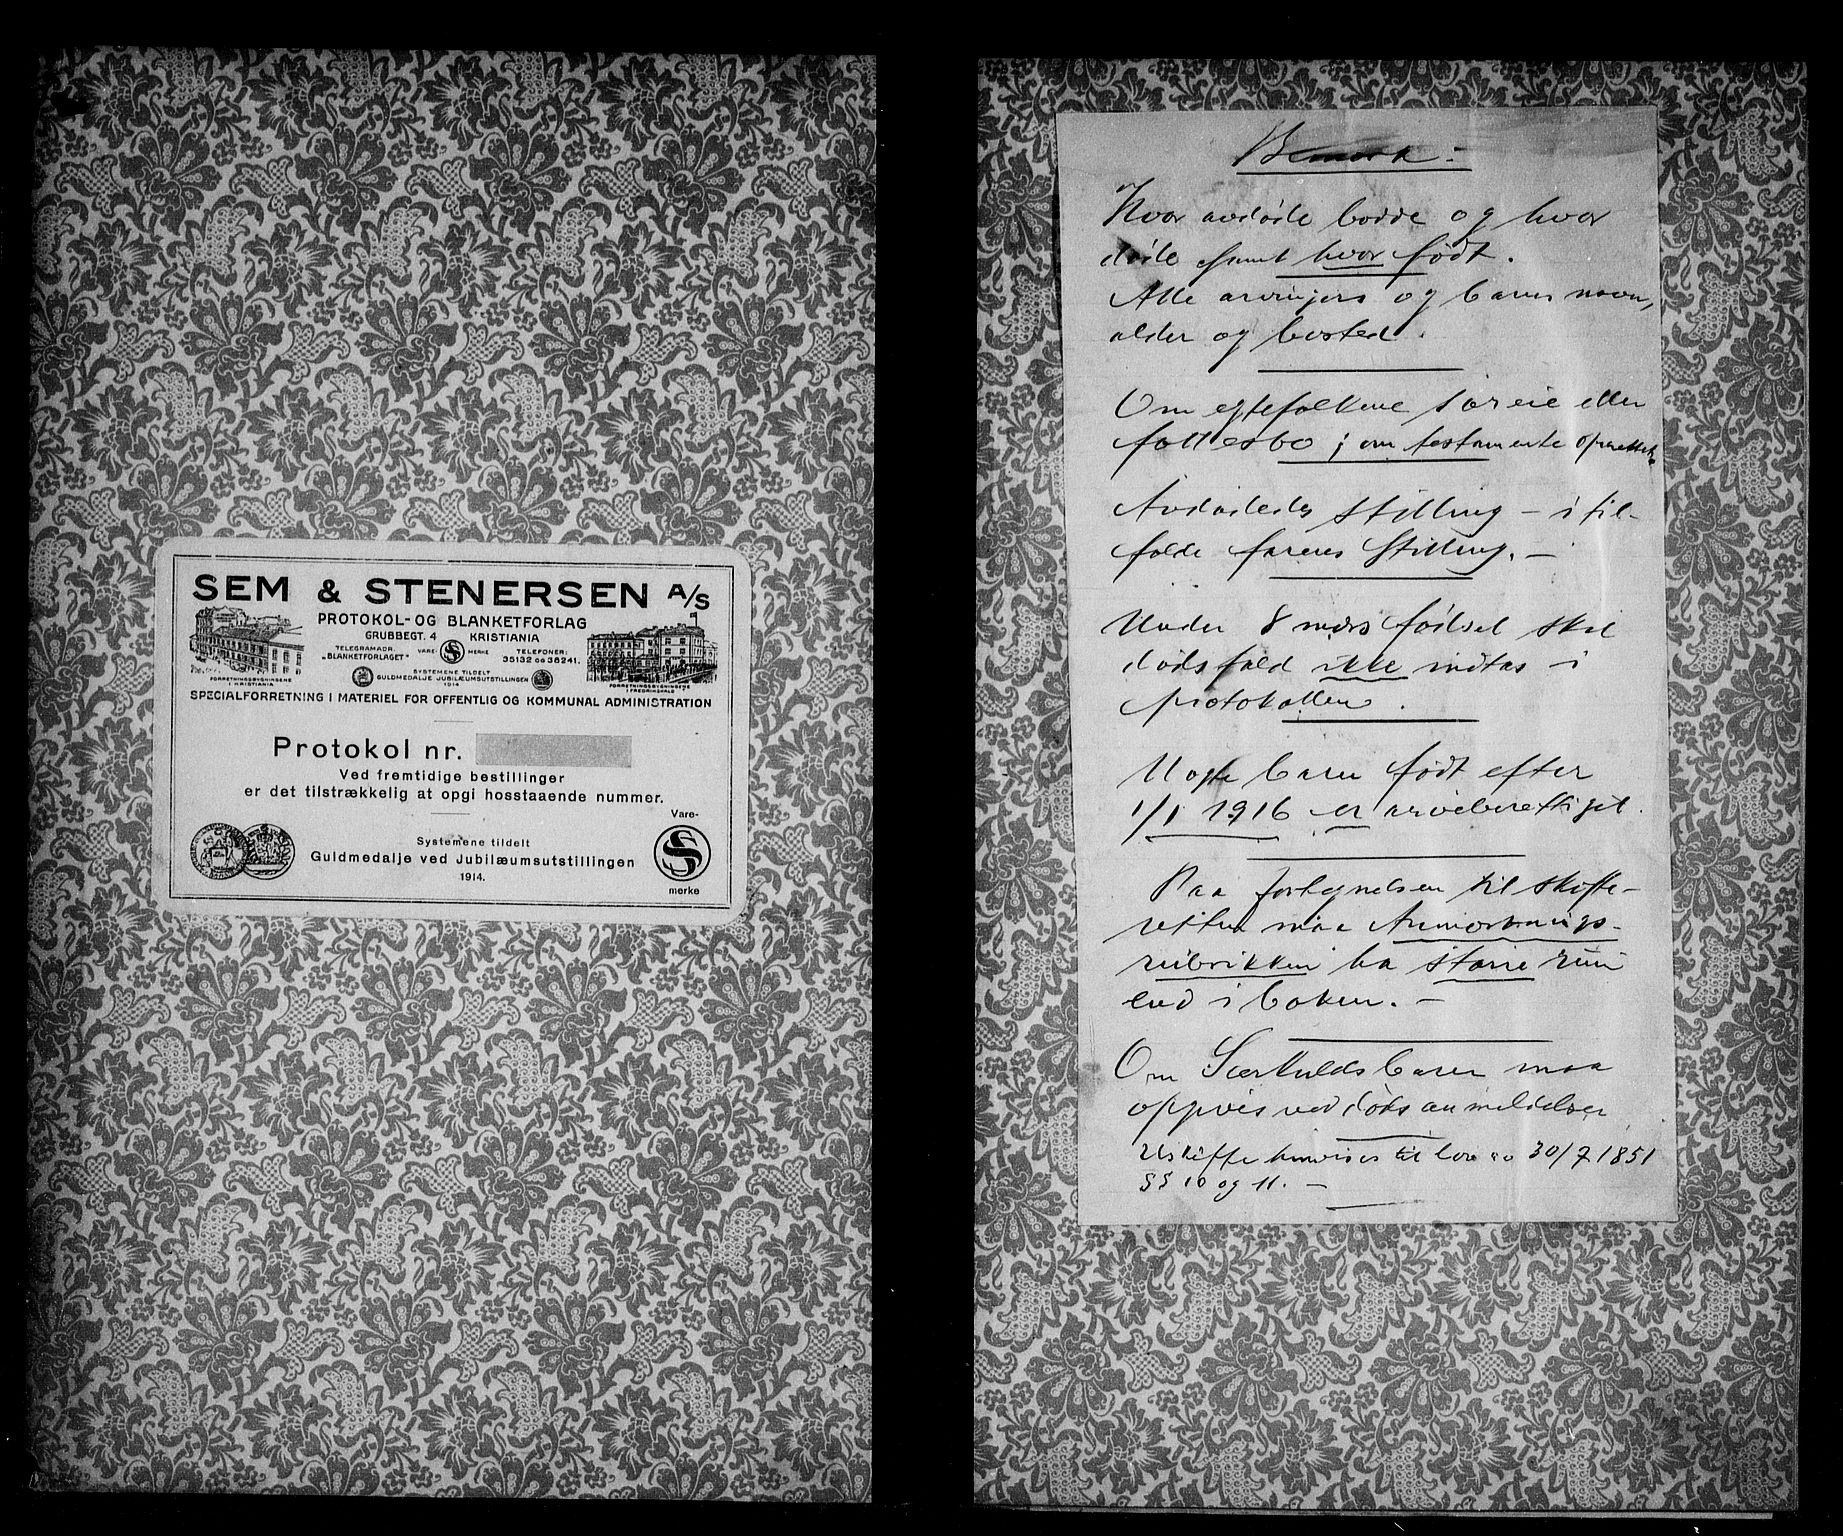 SEM & STENERSEN A/S
PROTOKOL- OG BLANKETFORLAG
GRUBBEGT. 4 KRISTIANIA
TELEGRAMADR. „BLANKETFORLAGET"
VARE MERKE
TELEFONER: 35132 OG 38241.
SYSTEMENE TILDELT
GULDMEDALJE JUBILÆUMSUTSTILLINGEN
1914
FORRETNINGSBYGNINGENE
I KRISTIANIA
FORRETNINGSBYGNINGENE
I FREDRIKSHALD
SPECIALFORRETNING I MATERIEL FOR OFFENTLIG OG KOMMUNAL ADMINISTRATION
Protokol nr.
Ved fremtidige bestillinger
er det tilstrækkelig at opgi hosstaaende nummer.
Vare-
Systemene tildelt
Guldmedalje ved Jubilæumsutstillingen
1914.
merke
Bemerk:
Hvor avdøde bodde og hvor
døde samt hvor født.
Alle arvingers og barns navn,
alder og bosted.
Om egtefolkene særeie eller
fællesbo; om testamente oprettet.
Avdødedes stilling – i til-
fælde farens stilling. –
Under 8 mdrs fødsel skal
dødsfald ikke indtas i
protokollen.
Uegte barn født efter
1/1 1916 er arveberettiget.
Paa fortegnelsen til skifte-
retten maa Anmerknings-
rubrikken ha større rum
end i boken. –
Om Særkuldsbarn maa
oppgis ved dødsanmeldelser
Uskifte henvises til lov av 30/7 1851
§§ 10 og 11. –